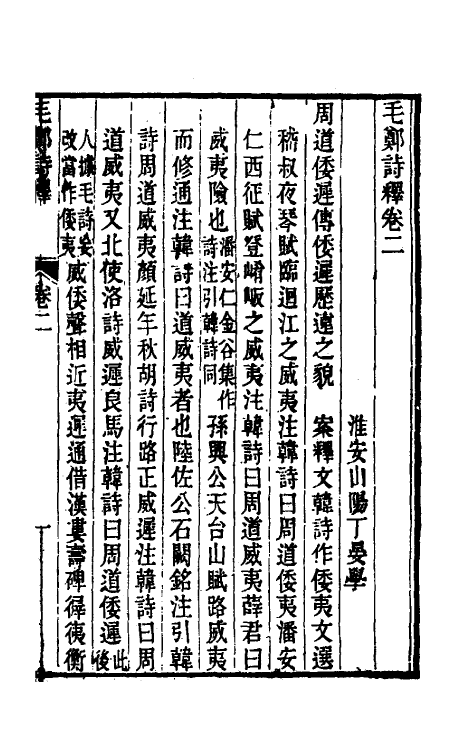 毛鄭詩釋卷二
淮安山陽丁晏學
周道倭遲傳倭遲歷遠之貌　案釋文韓詩作倭夷文選
嵇叔夜琴賦臨迴江之威夷注韓詩曰周道倭夷潘安
仁西征賦登崤岅之威夷注韓詩曰周道威夷薛君曰
威夷險也潘安仁金谷集作詩注引韓詩同孫興公天台山賦路威夷
而修通注韓詩曰道威夷者也陸佐公石闕銘注引韓
詩周道威夷顏延年秋胡詩行路正威遲注韓詩曰周
道威夷又北使洛詩威遲良馬注韓詩曰周道倭遲此後
人據毛詩妄改當作倭夷威倭聲相近夷遲通借漢婁壽碑徲㣟衡
毛鄭詩釋　卷二　一